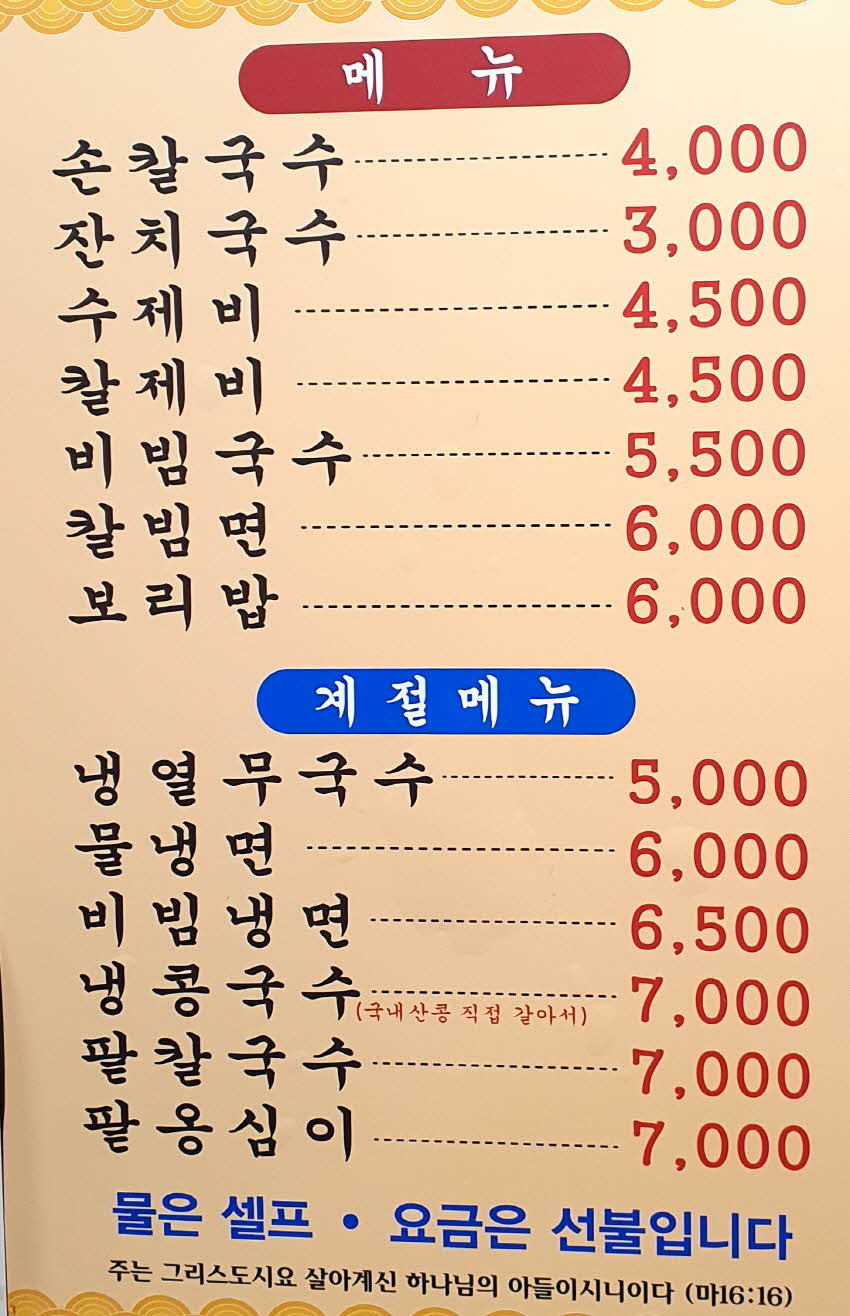 메 뉴
손칼국수 4,000
잔치국수 3,000
수제비 4,500
칼제비 4,500
비빔국수 5,500
칼빔면 6,000
보리밥 6,000
계절메뉴
냉열무국수 5,000
물냉면 6,000
비빔냉면 6,500
냉콩국수 7,000
(국내산콩 직접 갈아서)
팥칼국수 7,000
팥옹심이 7,000
물은 셀프 • 요금은 선불입니다
주는 그리스도시요 살아계신 하나님의 아들이시니이다 (마16:16)